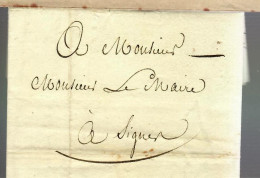 A Monsieur
Monsieur Le Maire
à Signes